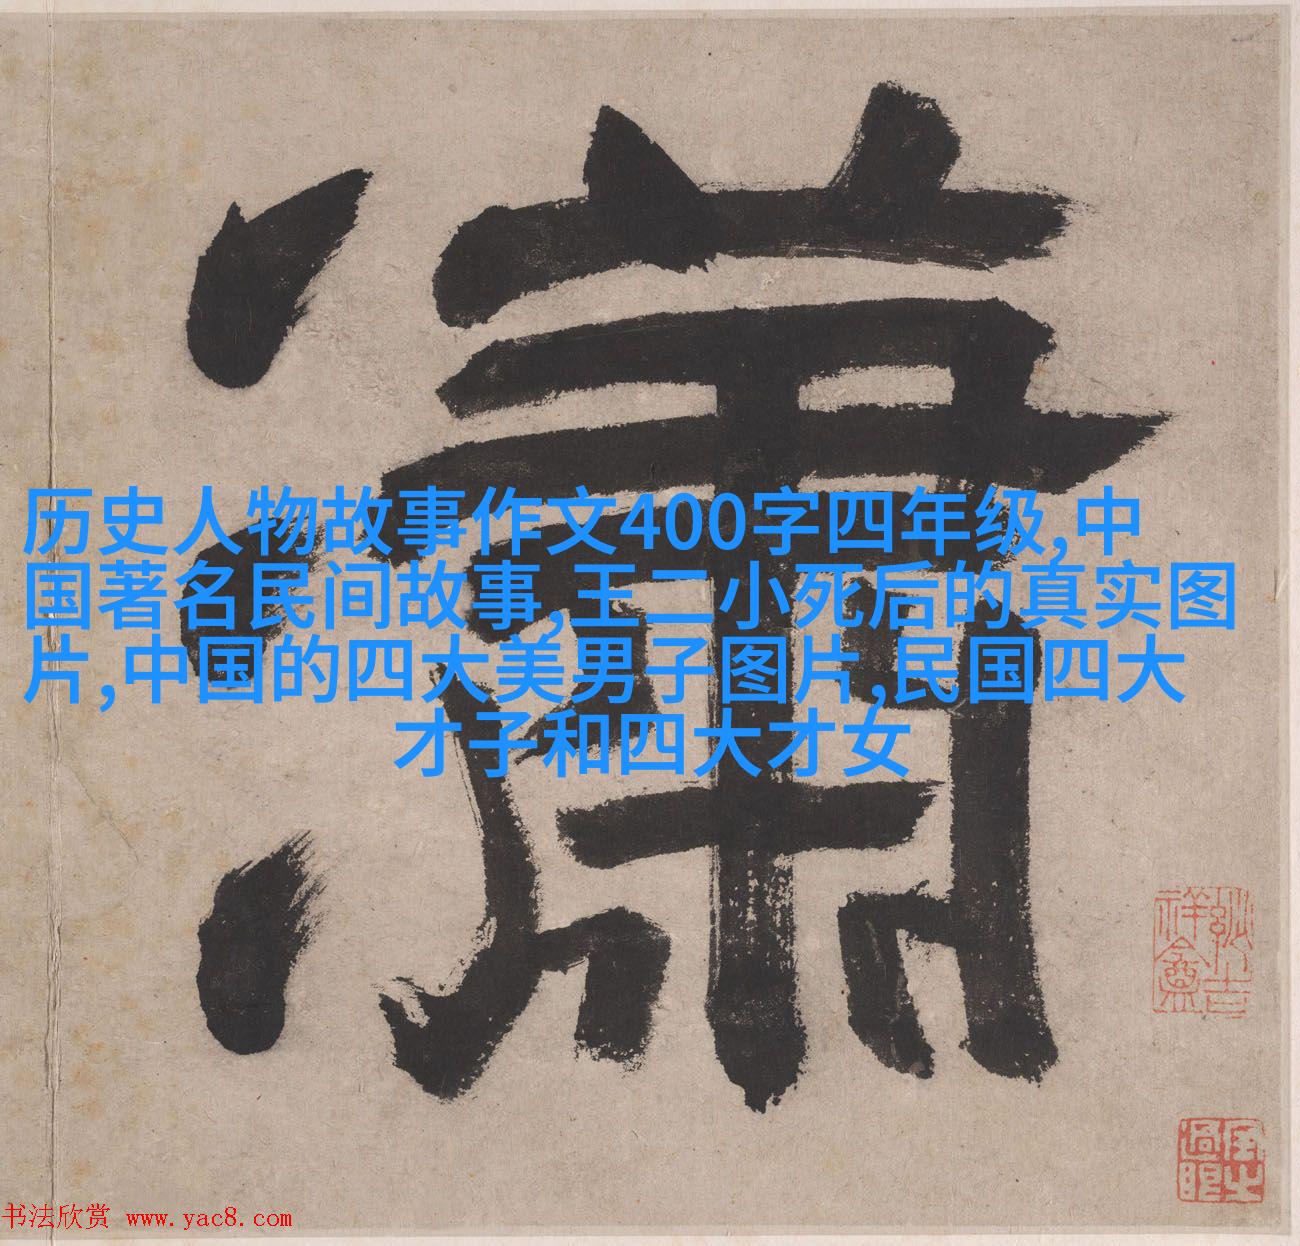 瀟
历史人物故事作文400字四年级,中
国著名民间故事,王二小死后的真实图
片,中国的四大美男子图片,民国四大
才子和四大才女
书法欣赏 www.yac8.com